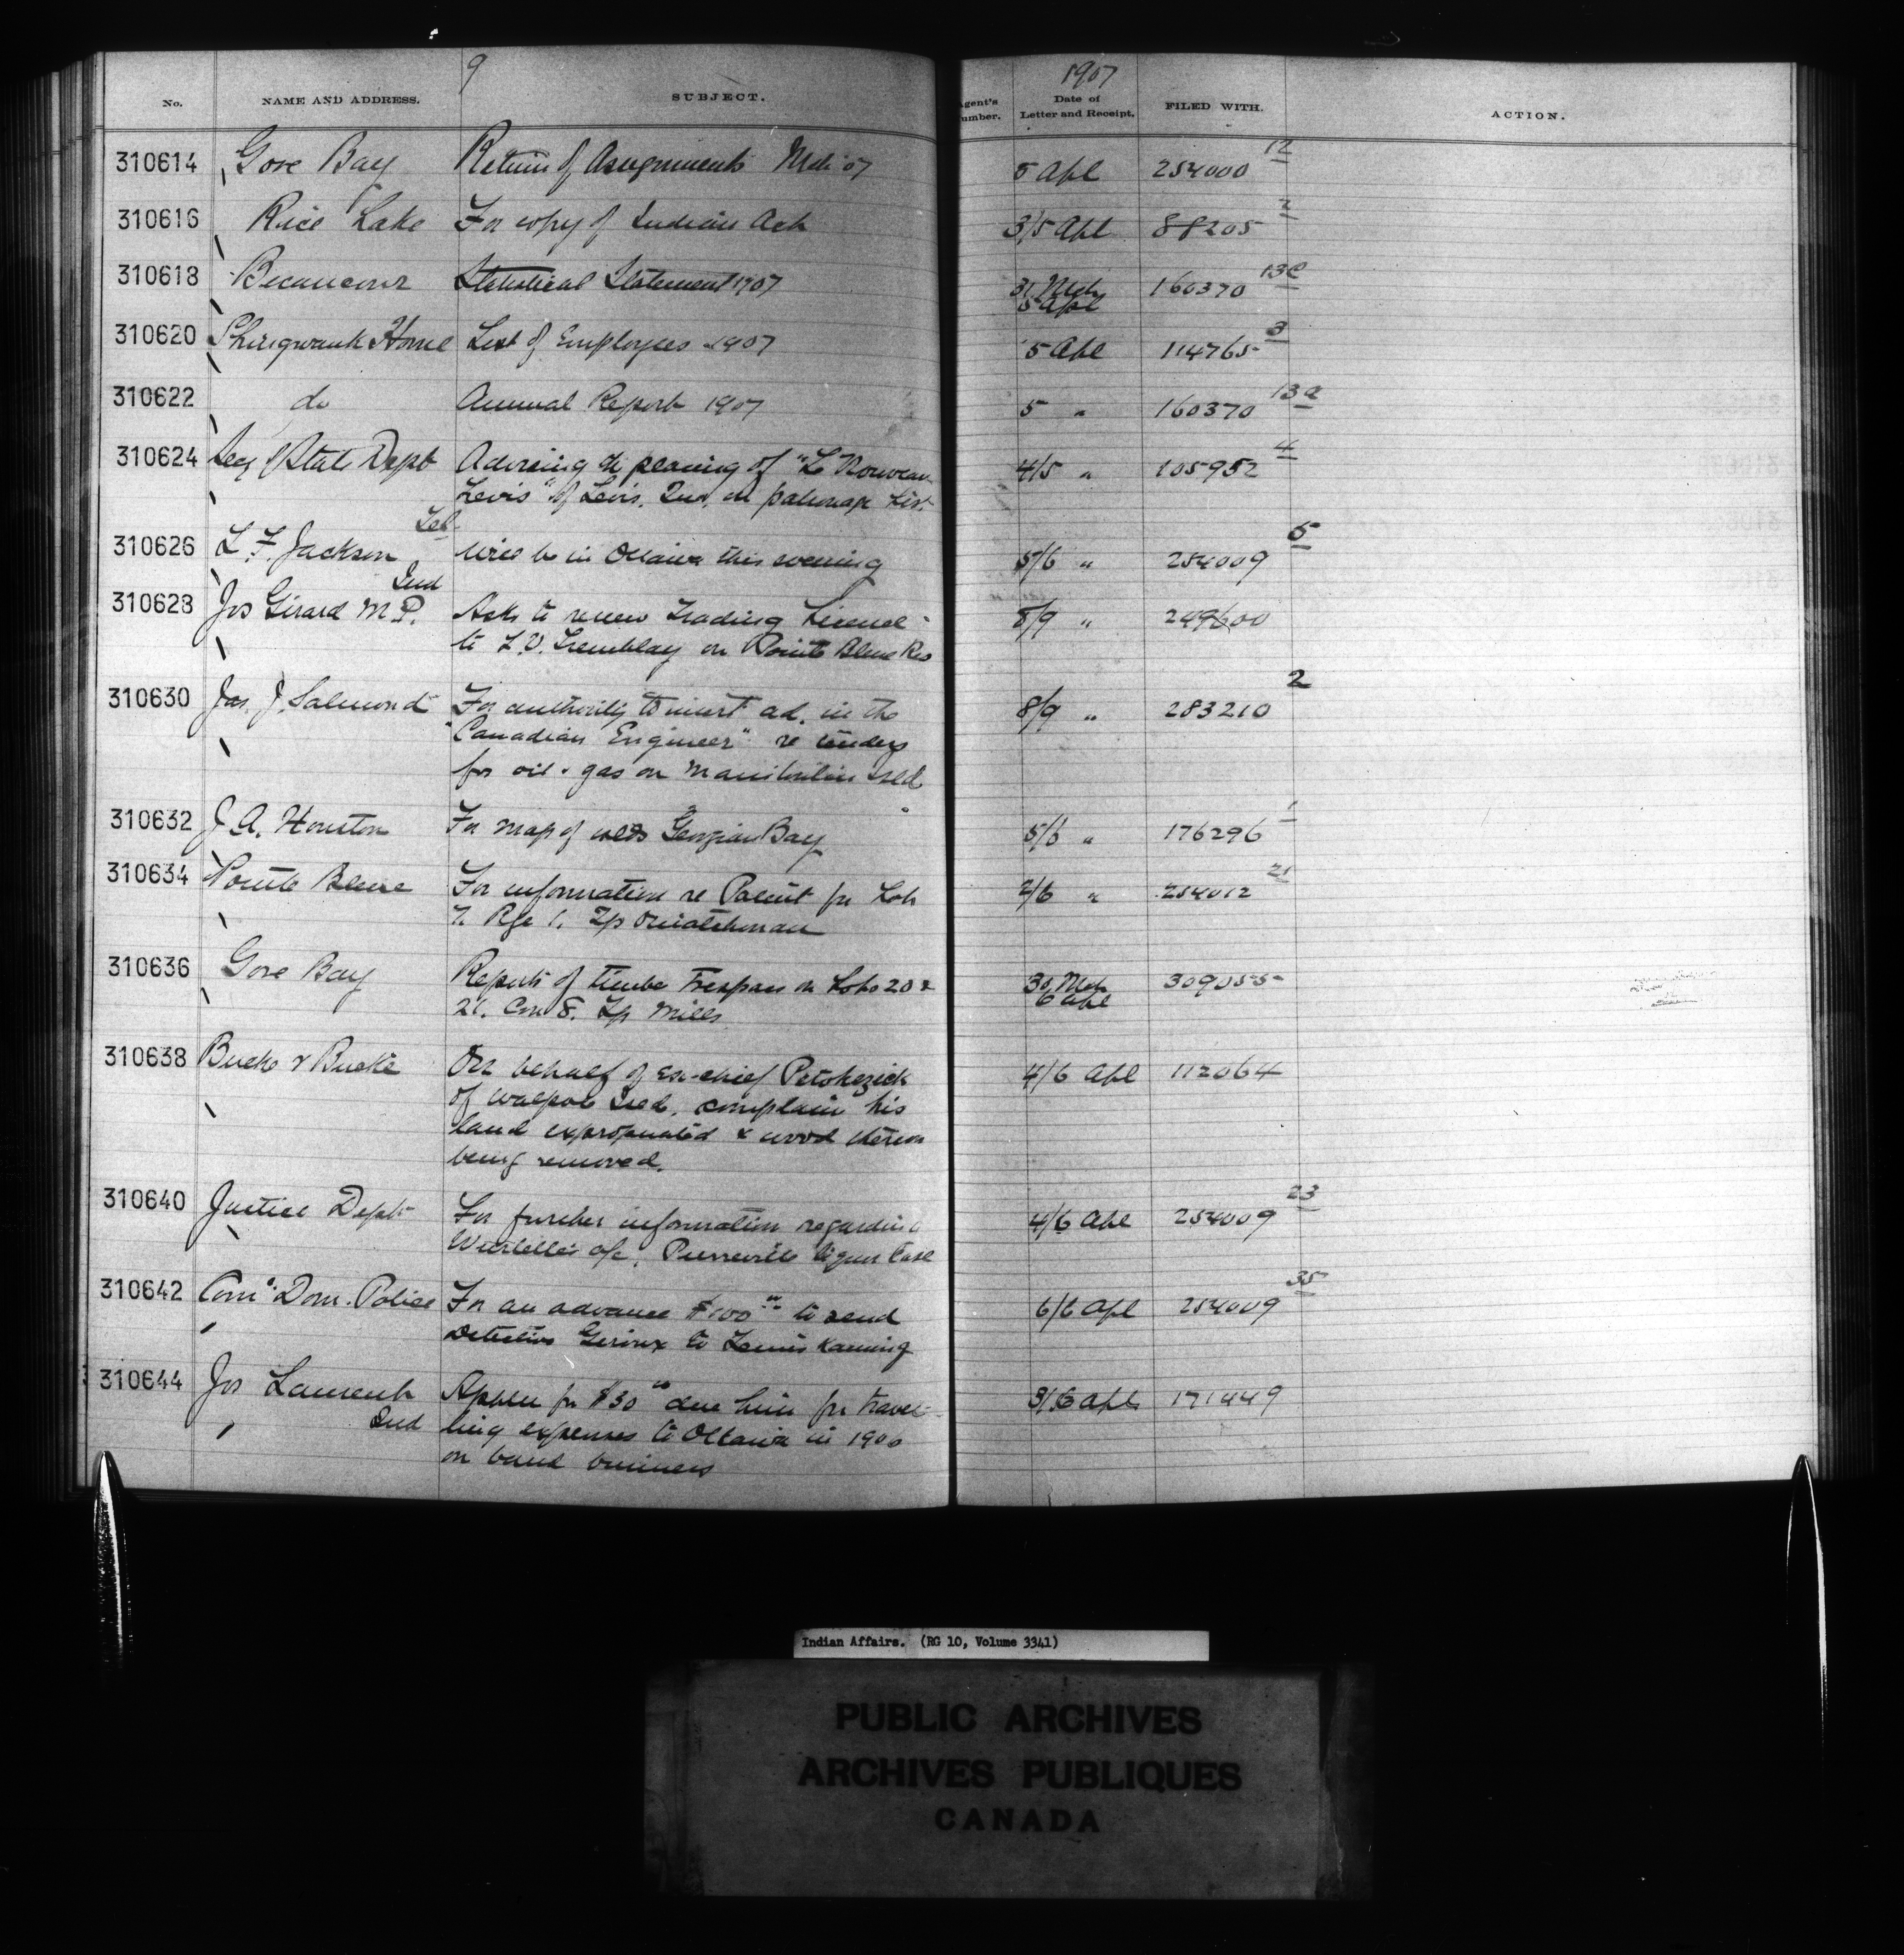 9
1907
No. NAME AND ADDRESS. SUBJECT. Agent's Number. Date of Letter and Receipt. FILED WITH. ACTION.
310614 Gore Bay Return of Assignments Mch '07 5 Apl 254000 12
310616 Rice Lake For copy of Indian Act 3/5 Apl 88205 2
310618 Becancour Statistical Statement 1907 31 Mch 160370 13c
5 Apl
310620 Shingwauk Home List of Employees 1907 5 Apl 114765 3
310622 do Annual Report 1907 5 " 160370 13a
310624 Secy of State Dept Advising the placing of "Le Nouveau 4/5 " 105952 4
Levis" of Levis, Que, on patronage List.
310626 L. F. Jackson Tel Will be in Ottawa this evening 5/6 " 254009 5
310628 Jos Girard M.P. Ind Asks to renew Trading License 8/9 " 249600
to L.V. Tremblay on Pointe Bleue Res
310630 Jas. J. Salmond For authority to insert ad. in the 8/9 " 283210 2
"Canadian Engineer" re tenders
for oil & gas on Manitoulin Isld
310632 J A. Houston For map of Georgian Bay 5/6 " 176296 1
310634 Pointe Bleue For information re Patent for Lot 2/6 " 254012 21
7. Rge 1. Tp Ouiatchouan
310636 Gore Bay Reports of timber Trespass on Lots 20 & 30 Mch 309055
21. Con 8. Tp Mills 6 Apl
310638 Bucke & Bucke On behalf of Ex-chief Petokezick 4/6 Apl 112064
of Walpole Isld. complain his
land expropriated & wood thereon
being removed.
310640 Justice Dept For further information regarding 4/6 Apl 254009 23
Wurtelle's a/c, Pierreville liquor Case
310642 Comr Dom. Police For an advance $100.00 to send 6/6 Apl 254009 35
Detective Giroux to Temiskaming
310644 Jos Laurent Applies for $30.00 due him for travel- 3/6 Apl 171449
Ind ling expenses to Ottawa in 1900
on band business
Indian Affairs. (RG 10, Volume 3341)
PUBLIC ARCHIVES
ARCHIVES PUBLIQUES
CANADA